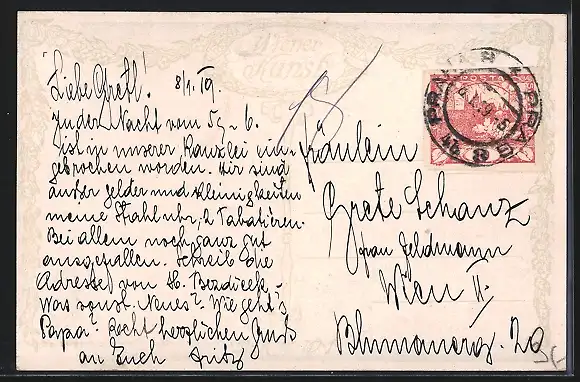 Wiener
Kunst
Liebe Gretl! 8/1. 19.
In der Nacht vom 5 - 6.
ist in unserer Kanzlei ein-
gebrochen worden. Mir sind
außer Gelder und Kleinigkeiten
meine Stahluhr, 2 Tabatièren.
Bei allem noch ganz gut
ausgefallen. Schreib die
Adresse von
Was sonst Neues? Wie geht's
Papa? Recht herzlichen Gruß
an Euch Fritz
Fräulein
Grete Schanz
frau Feldmann
Wien II.
Blumauerg. 20
POŠTA
PRAHA
PRAG
8